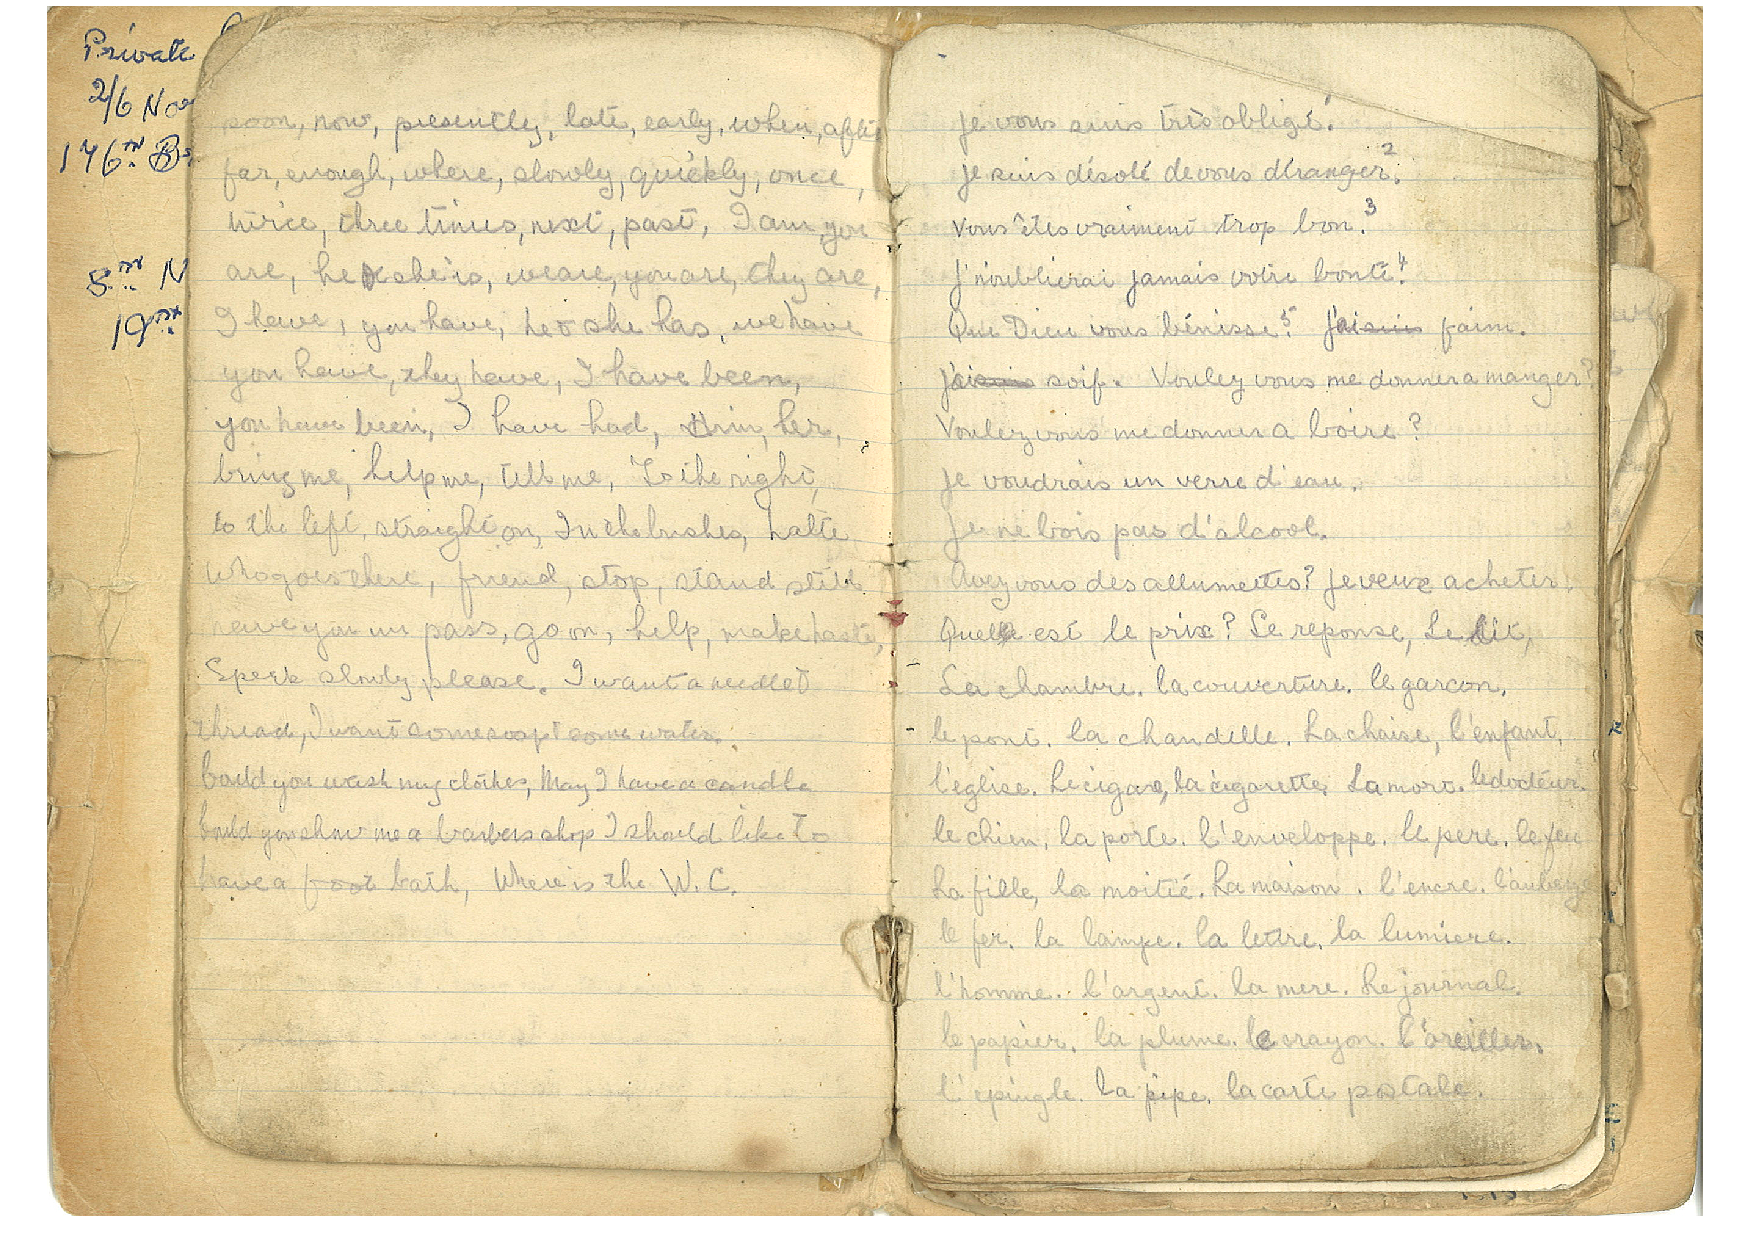 Private
2/6 Nor
176TH B
5TH N
19TH
soon, now, presently, late, early, when, after
far, enough, where, slowly, quickly, once,
twice, three times, next, past, I am, you
are, he & she is, we are, you are, they are,
I have, you have, he & she has, we have
you have, they have, I have been,
you have been, I have had, him, her,
bring me, help me, tell me, To the right,
to the left, straight on, In the bushes, halte
who goes there, friend, stop, stand still
have you un pass, go on, help, make haste,
Speek slowly please. I want a needle &
thread, I want some soap & some water.
Could you wash my clothes, May I have a candle
Could you show me a barbers shop I should like to
have a foot bath, Where is the W.C.
Je vous suis très obligé.1
Je suis désolé de vous déranger.2
Vous êtes vraiment trop bon.3
J'n'oublierai jamais votre bonté.4
Que Dieu vous bénisse.5 J'ai suis faim.
J'ai suis soif. Voulez vous me donner a manger?
Voulez vous me donner a boire?
Je voudrais un verre d'eau.
Je ne bois pas d'alcool.
Avez vous des allumettes? Je veux acheter.
Quelle est le prix? Le reponse, Le lit,
La chambre. la couverture. le garcon.
le pont. la chandelle. La chaise, l'enfant.
l'eglise. Le cigare, la cigarette, La mort. le docteur.
le chien, la porte. l'enveloppe. le pere. le feu
La fille, la moitié. La maison. l'encre. l'auberge
le fer. la lampe. la lettre. la lumiere.
l'homme. l'argent. la mere. Le journal.
le papier. la plume. le crayon. l'oreiller.
l'epingle. la pipe. la carte postale.